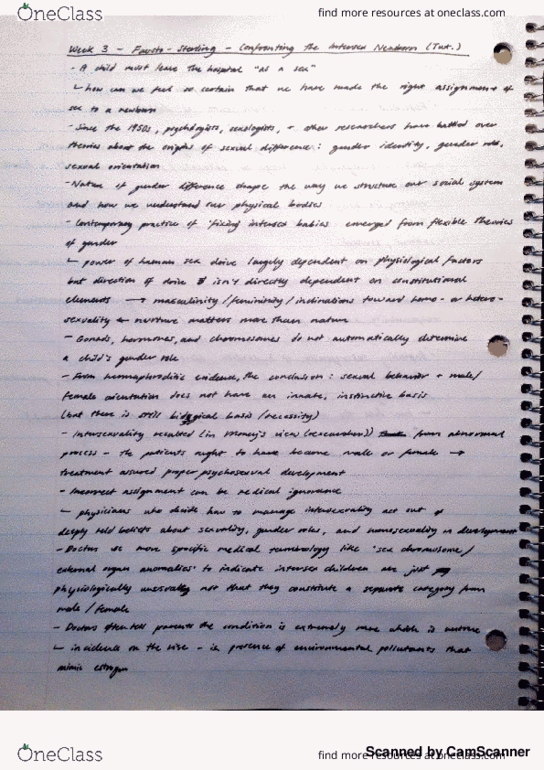 OneClass
find more resources at oneclass.com
Week 3 - Fausto-Sterling - Confronting The Intersex Newborn (Tut.)
- A child must leave the hospital "as a sex"
↳ how can we feel so certain that we have made the right assignment of
sex to a newborn
- Since the 1950s, psychologists, sexologists, + other researchers have battled over
theories about the origins of sexual difference: gender identity, gender role,
sexual orientation
- Nature of gender difference shape the way we structure our social system
and how we understand our physical bodies
- Contemporary practice of 'fixing intersex babies' emerged from flexible theories
of gender
↳ power of human sex drive largely dependent on physiological factors
but direction of drive isn't directly dependent on constitutional
elements → masculinity/femininity/inclinations toward homo- or hetero-
sexuality ← nurture matters more than nature
- Gonads, hormones, and chromosomes do not automatically determine
a child's gender role
- From hermaphroditic evidence, the conclusion: sexual behavior + male/
female orientation does not have an innate, instinctive basis
(but there is still biological basis/necessity)
- Intersexuality resulted (in Money's view (researcher)) from abnormal
process - the patients ought to have become male or female →
treatment assured proper psychosexual development
- Incorrect assignment can be medical ignorance
↳ physicians who decide how to manage intersexuality act out of
deeply held beliefs about sexuality, gender roles, and homosexuality in development
- Doctors use more specific medical terminology like 'sex chromosome/
external organ anomalies' to indicate intersex children are just
physiologically unusually not that they constitute a separate category from
male/female
- Doctors often tell parents the condition is extremely rare which is untrue
↳ incidence on the rise - ie presence of environmental pollutants that
mimic estrogen
OneClass
find more resources at oneclass.com
Scanned by CamScanner